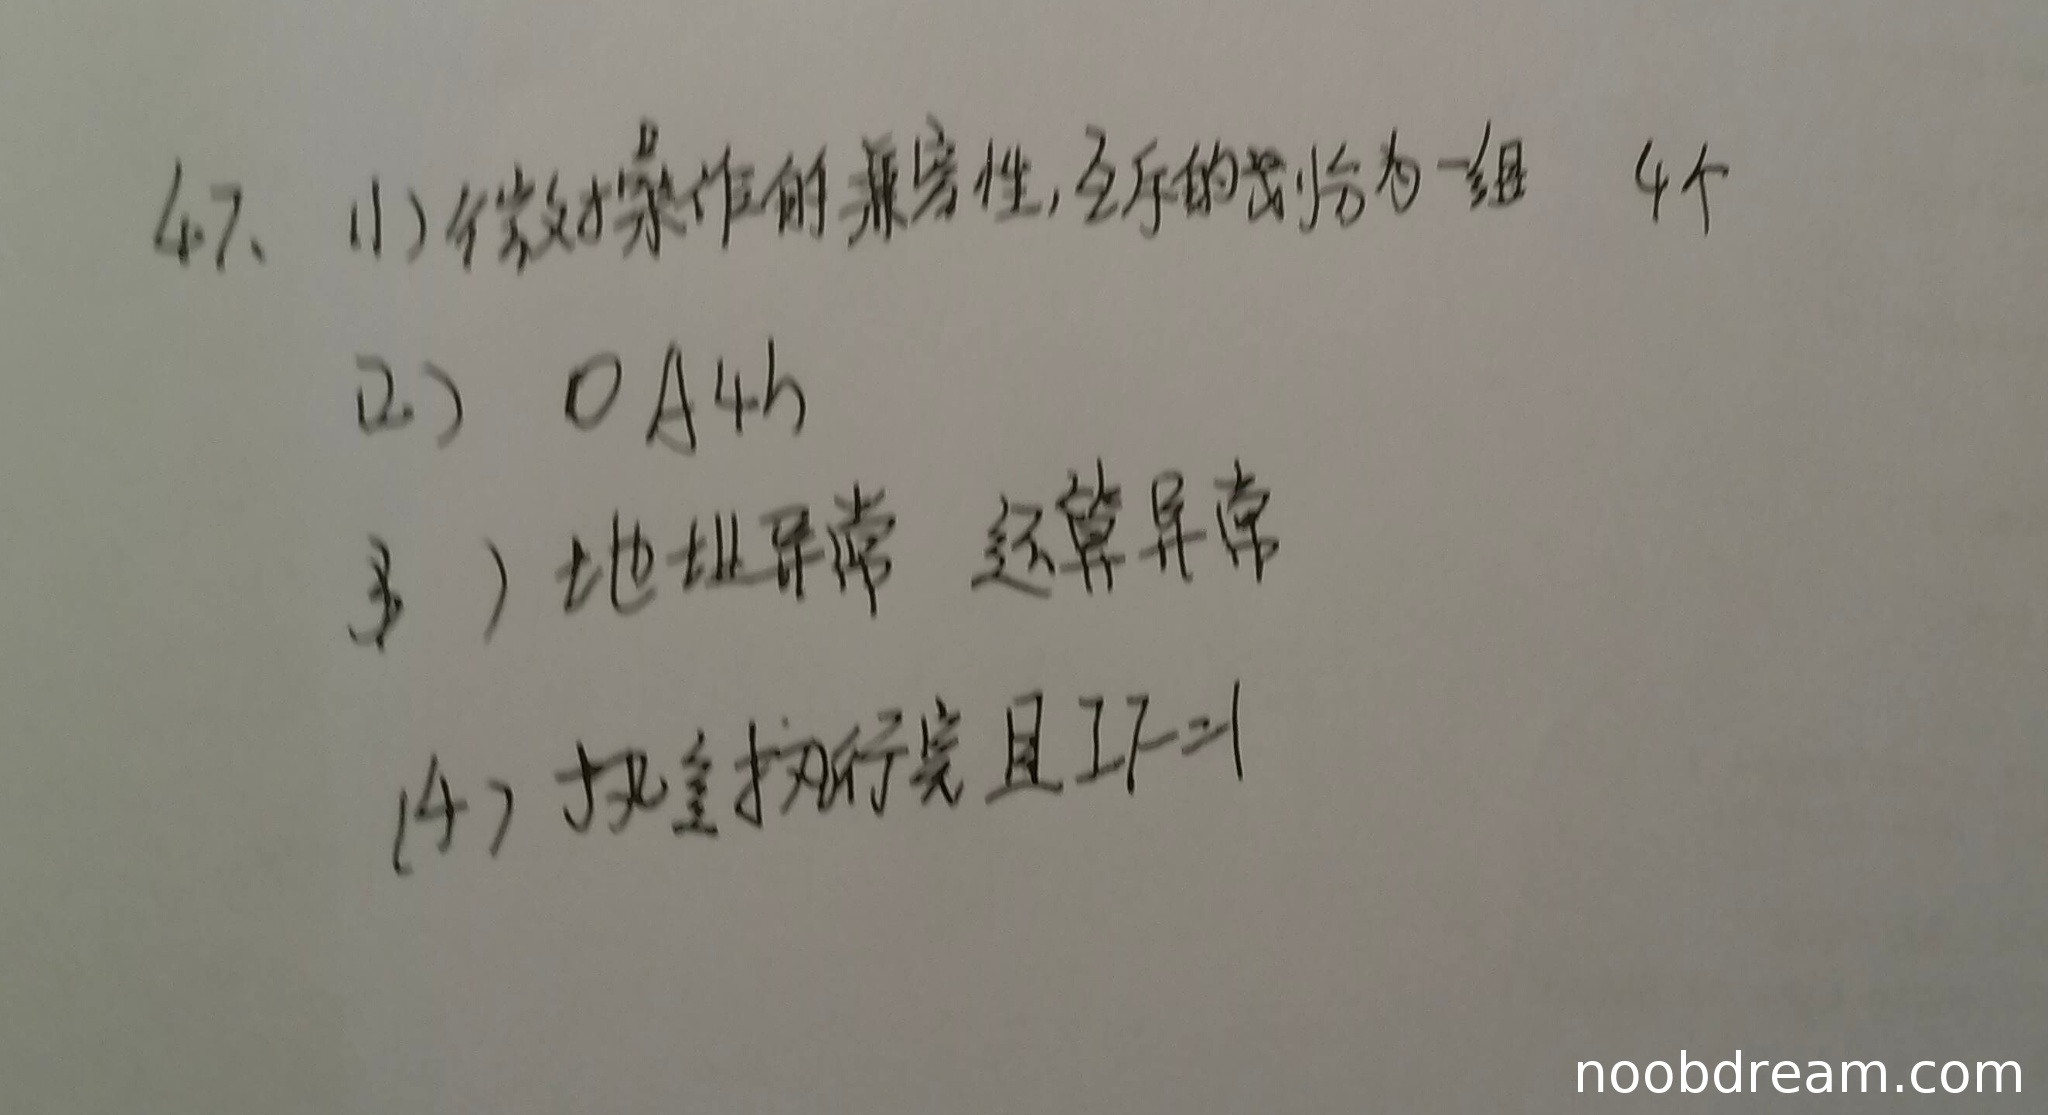 47、 (1) 微操作的兼容性,互斥的划分为一组 4个
(2) 0A4h
3) 地址异常 运算异常
(4) 执行完且IF=1
noobdream.com